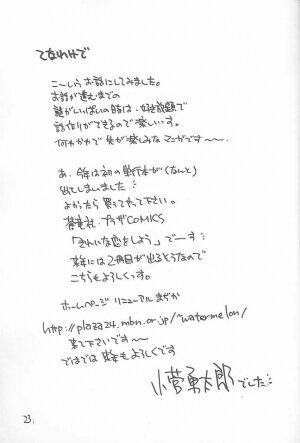 てなわけで
こーしうお話にしてみました。
お話が進むまでの
謎がいっぱいの時は、好き放題で
話作りができるので楽しいす。
何わかで 先が楽しみなマンガです〜〜。
あ、今年は初の単行本が(なんと)
出てしまいました…
よかったら 買ってやって下さい。
蒼竜社、プラザCOMICS
「きれいな恋をしよう」でーす…
来年には2冊目が出るとうなので
こちらもよろしくっす。
ホームページ リニューアル まぢか
http://plaza24.mbn.or.jp/~watermelon/
来て下さいです〜
ではでは 来年もよろしくです
小菅勇太郎でした…
23.